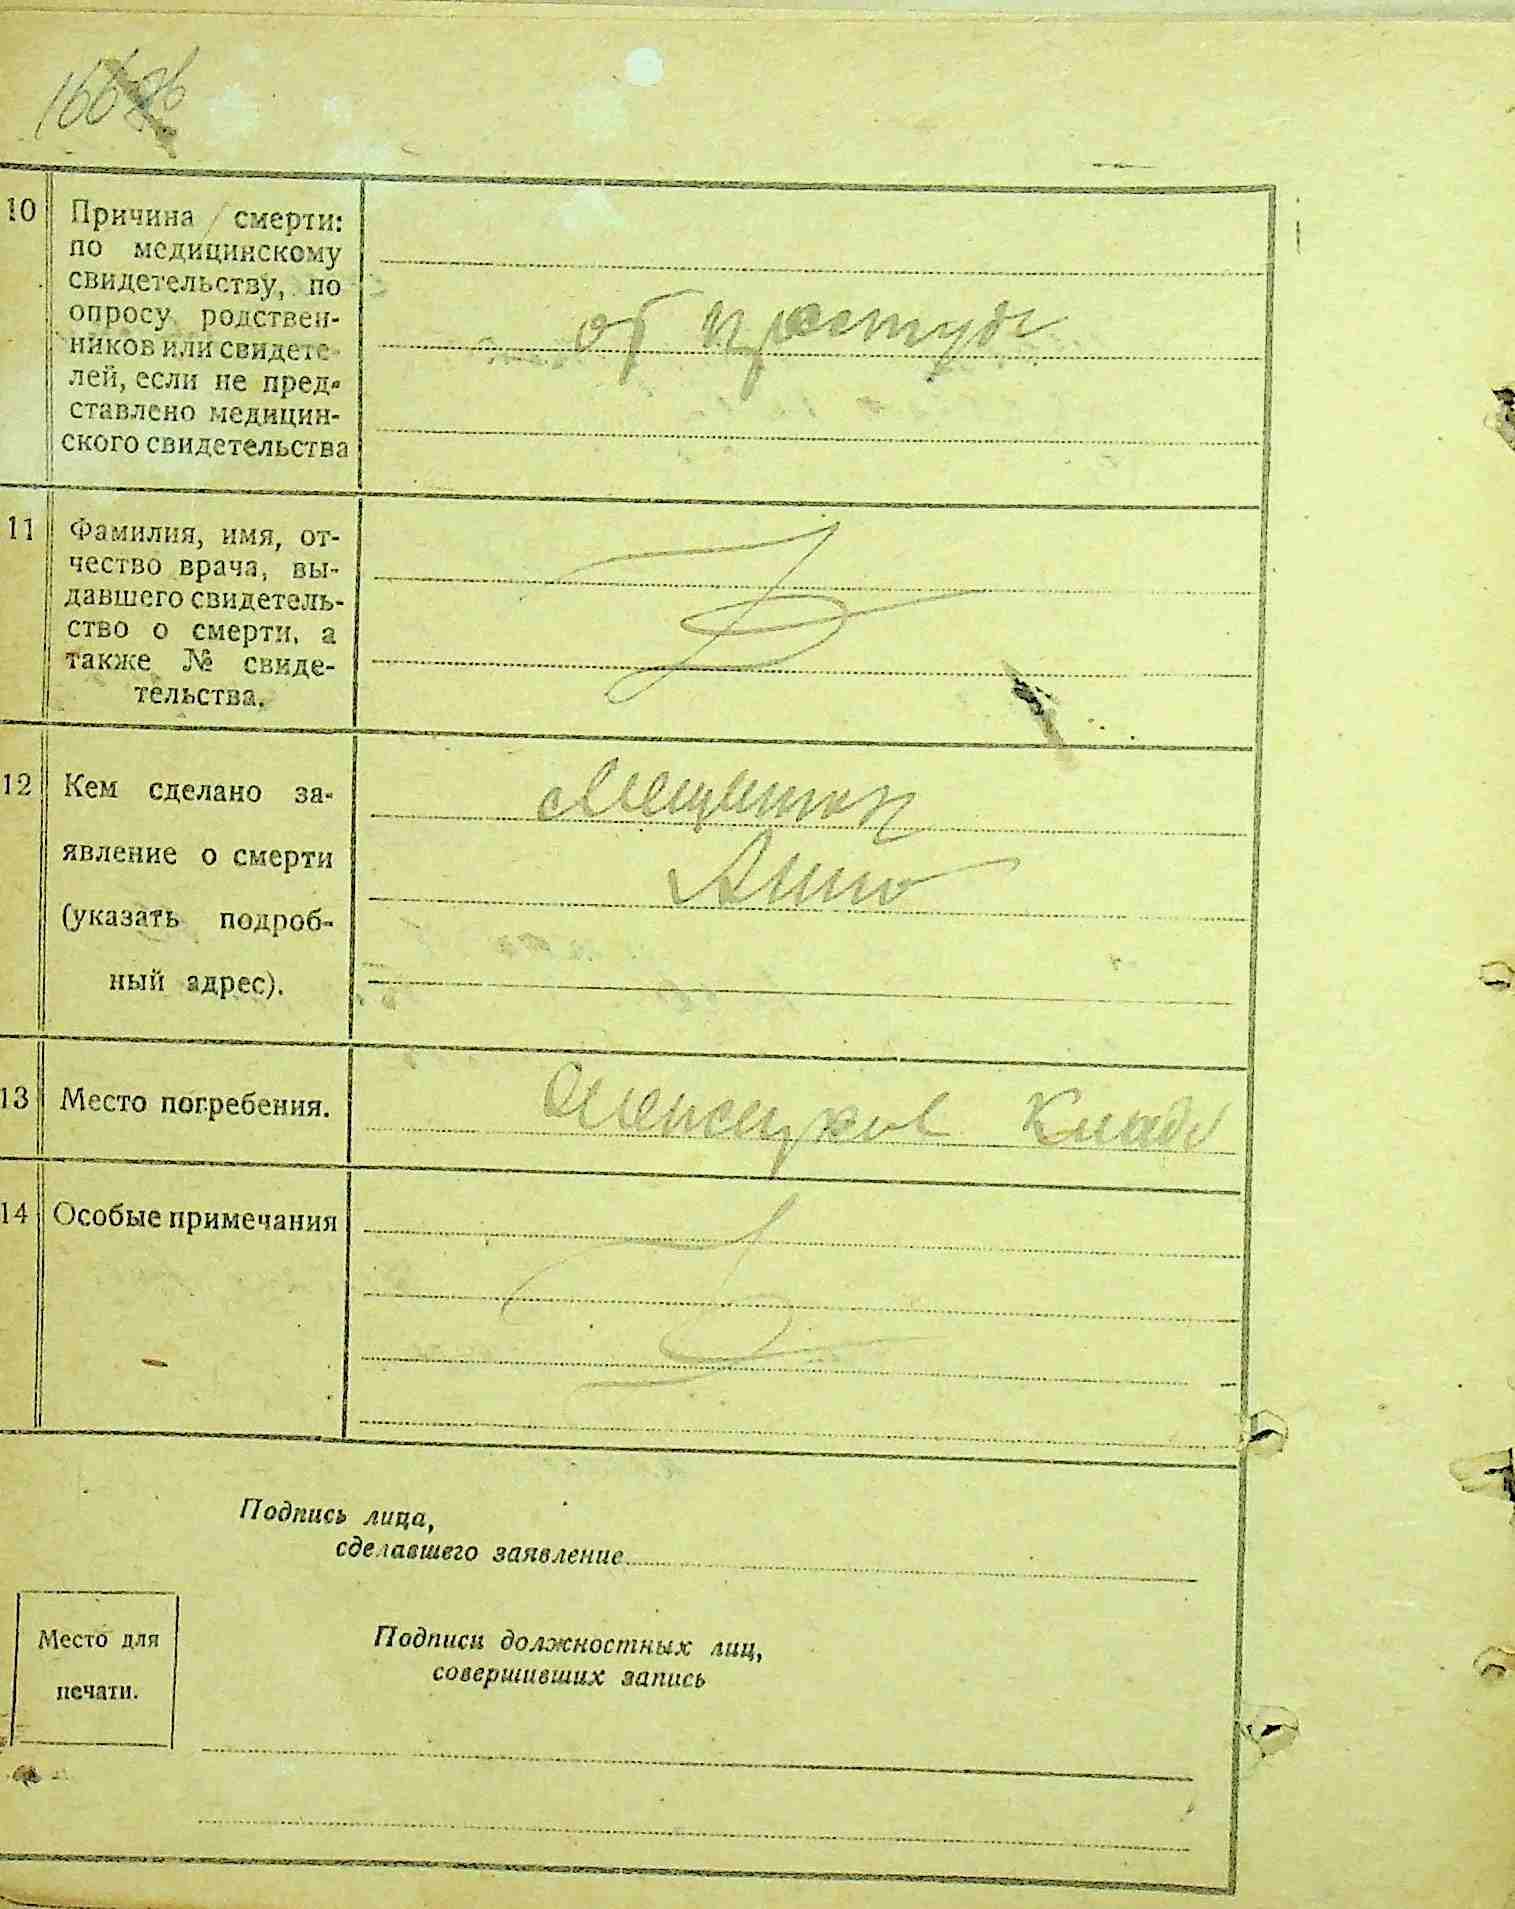 10 Причина смерти:
по медицинскому
свидетельству, по
опросу родствен-
ников или свидете-
лей, если не пред-
ставлено медицин-
ского свидетельства
от простуде
11 Фамилия, имя, от-
чество врача, вы-
давшего свидетель-
ство о смерти, а
также № свиде-
тельства.
12 Кем сделано за-
явление о смерти
(указать подроб-
ный адрес).
13 Место погребения.
14 Особые примечания
Подпись лица,
сделавшего заявление
Место для
печати.
Подписи должностных лиц,
совершивших запись